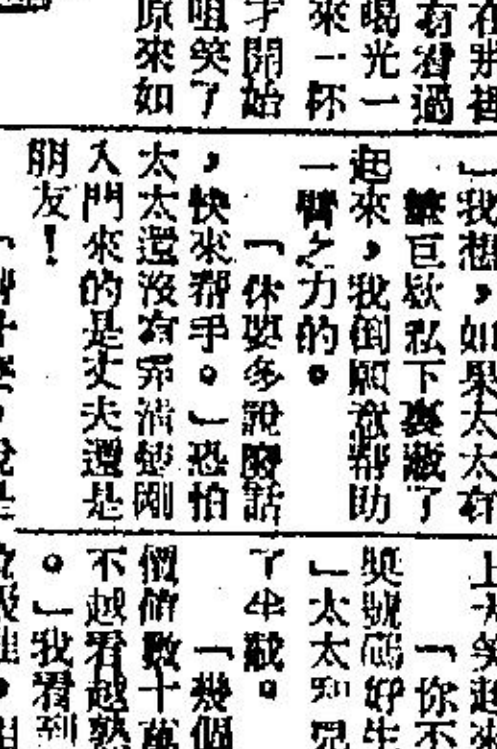 在那裡
有看過
喝光一
來一杯
才開始
咀笑了
原來如
」我想，如果太太存
巨欵私下裏藏了
起來，我倒願意幫助
一臂之力的。
「休要多說廢話
，快來帮手。」恐怕
太太還沒有弄清楚剛
入門來的是丈夫還是
朋友！
是
上 笑起來
「你不
獎號碼好生
」太太知
了半載。
「幾個
價值數十萬
不越看越熟
。」我看到